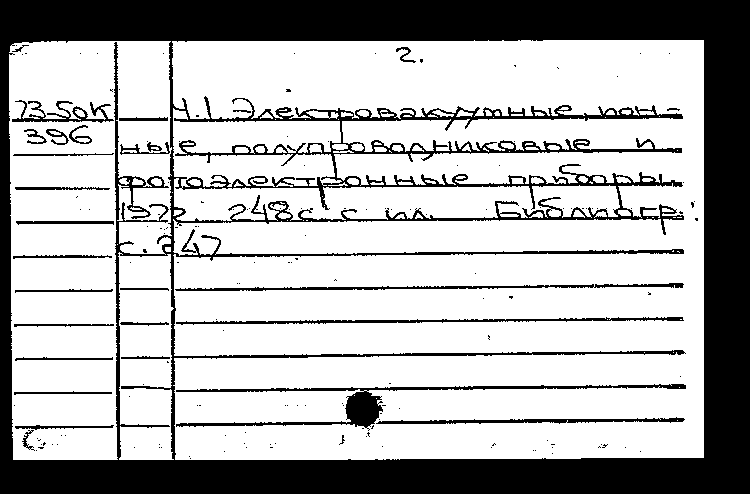 2.
73-50К Ч.1. Электровакуумные, ион-
396
ные, полупроводниковые и
фотоэлектронные приборы.
1972. 248с. с ил. Библиогр.:
с. 247